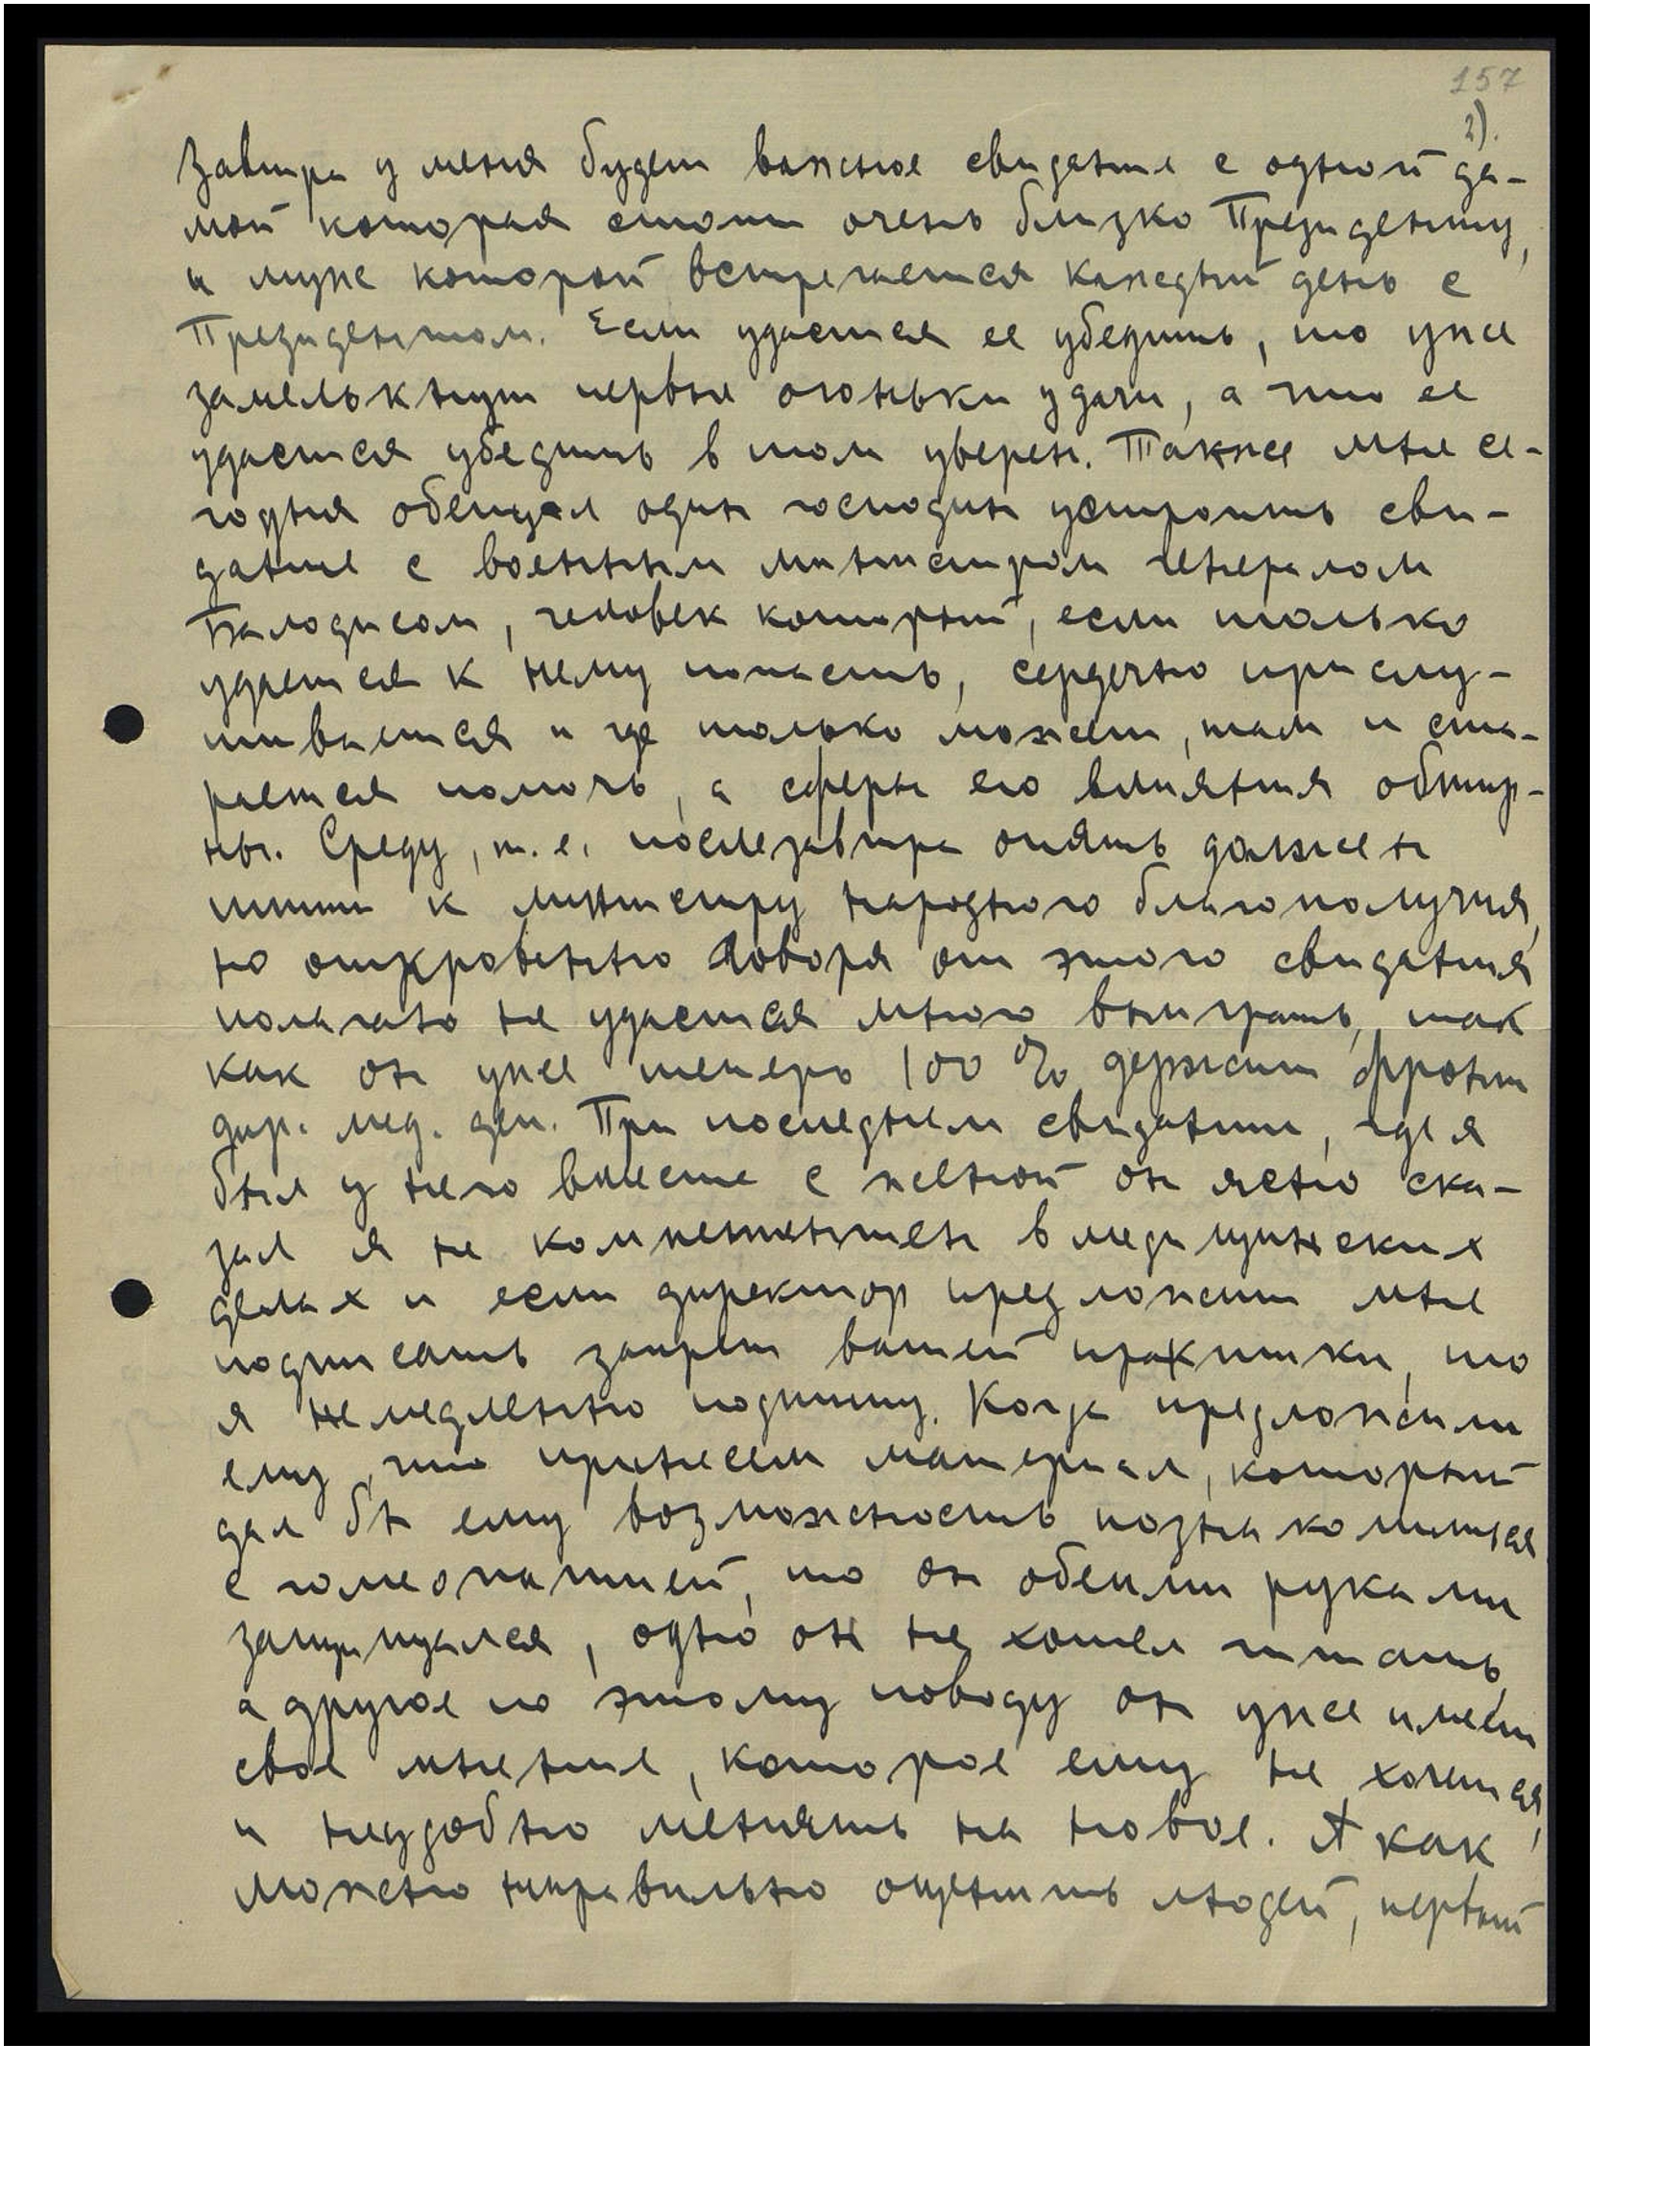 157
2).
Завтра у меня будет важное свидание с одной да-
мой которая стоит очень близко Президенту,
и муж которой встречается каждый день с
Президентом. Если удастся ее убедить, то уже
замелькнут первые огоньки удачи, а что ее
удастся убедить в том уверен. Также мне се-
годня обещал один господин устроить сви-
дание с военным министром генералом
Балодисом, человек который, если только
удается к нему попасть, сердечно прислу-
шивается и где только может, там и ста-
рается помочь, а сферы его влияния обшир-
ны. Среду, т.е. послезавтра опять должен
итти к министру народного благополучия,
но откровенно говоря от этого свидания
полагаю не удастся много выиграть, так
как он уже теперь 100% держит фронт
дир. мед. деп. При последнем свидании, где я
был у него вместе с женой он ясно ска-
зал я не компетентен в медицинских
делах и если директор предложит мне
подписать запрет вашей практики, то
я немедленно подпишу. Когда предложили
ему, что принесем материал, который
дал бы ему возможность познакомиться
с гомеопатией, то он обеими руками
защищался, одно он не хотел читать,
а другое по этому поводу он уже имеет
свое мнение, которое ему не хочется,
и неудобно менять на новое. А как
можно неправильно оценить людей, первый